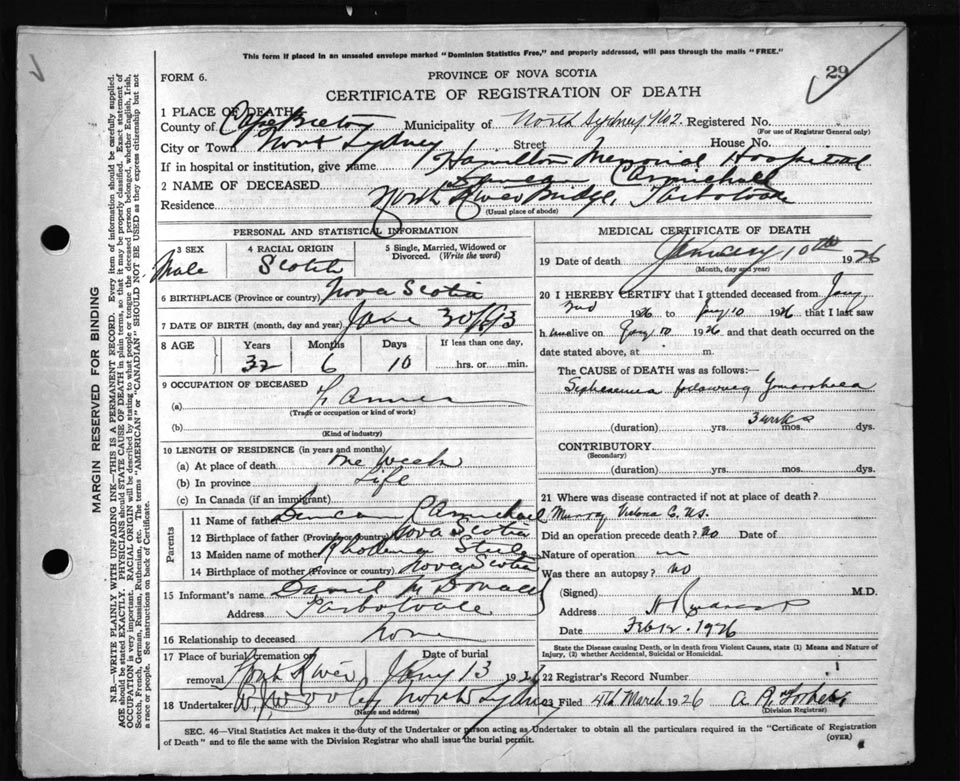 This form if placed in an unsealed envelope marked "Dominion Statistics Free," and properly addressed, will pass through the mails "FREE."
FORM 6.
PROVINCE OF NOVA SCOTIA
29
CERTIFICATE OF REGISTRATION OF DEATH
1 PLACE OF DEATH
County of Cape Breton Municipality of North Sydney No2. Registered No.
(For use of Registrar General only)
City or Town North Sydney Street House No.
If in hospital or institution, give name Hamilton Memorial Hospital
2 NAME OF DECEASED Carmichael
Residence North River Bridge, Tarbotvale
(Usual place of abode)
PERSONAL AND STATISTICAL INFORMATION
3 SEX Male
4 RACIAL ORIGIN Scotch
5 Single, Married, Widowed or Divorced. (Write the word)
6 BIRTHPLACE (Province or country) Nova Scotia
7 DATE OF BIRTH (month, day and year) June 30/93
8 AGE Years Months Days If less than one day,
32 6 10 hrs. or min.
9 OCCUPATION OF DECEASED
(a) Farmer
(Trade or occupation or kind of work)
(b)
(Kind of industry)
10 LENGTH OF RESIDENCE (in years and months)
(a) At place of death One Week
(b) In province Life
(c) In Canada (if an immigrant)
Parents
11 Name of father Duncan Carmichael
12 Birthplace of father (Province or country) Nova Scotia
13 Maiden name of mother Rhodena
14 Birthplace of mother (Province or country) Nova Scotia
15 Informant's name Daniel McDonald
Address Tarbotvale
16 Relationship to deceased None
17 Place of burial, cremation or removal North River
Date of burial Jany 13 1926
18 Undertaker North Sydney
(Name and address)
MEDICAL CERTIFICATE OF DEATH
19 Date of death January 10th 1926
(Month, day and year)
20 I HEREBY CERTIFY that I attended deceased from Jany
1926 to Jany 10 1926 that I last saw
h im alive on Jany 10 1926 and that death occurred on the
date stated above, at m.
The CAUSE of DEATH was as follows:—
following
(duration) yrs. 3 wks mos. dys.
CONTRIBUTORY.
(Secondary)
(duration) yrs. mos. dys.
21 Where was disease contracted if not at place of death?
Murray Victoria Co. N.S.
Did an operation precede death? No Date of
Nature of operation
Was there an autopsy? No
(Signed) M.D.
Address
Date Feb 12. 1926
State the Disease causing Death, or in death from Violent Causes, state (1) Means and Nature of Injury, (2) whether Accidental, Suicidal or Homicidal.
22 Registrar's Record Number
23 Filed 4th March 1926
(Division Registrar)
SEC. 46—Vital Statistics Act makes it the duty of the Undertaker or person acting as Undertaker to obtain all the particulars required in the "Certificate of Registration
of Death" and to file the same with the Division Registrar who shall issue the burial permit.
(OVER)
MARGIN RESERVED FOR BINDING
N.B.—WRITE PLAINLY WITH UNFADING INK—THIS IS A PERMANENT RECORD. Every item of information should be carefully supplied.
AGE should be stated EXACTLY. PHYSICIANS should STATE CAUSE OF DEATH in plain terms, so that it may be properly classified. Exact statement of
OCCUPATION is very important. RACIAL ORIGIN will be described by stating to what people or tongue the deceased person belonged, whether English, Irish,
Scotch, French, German, Russian, Ruthenian, etc. The terms "AMERICAN" or "CANADIAN" SHOULD NOT BE USED as they express citizenship but not
a race or people. See instructions on back of Certificate.